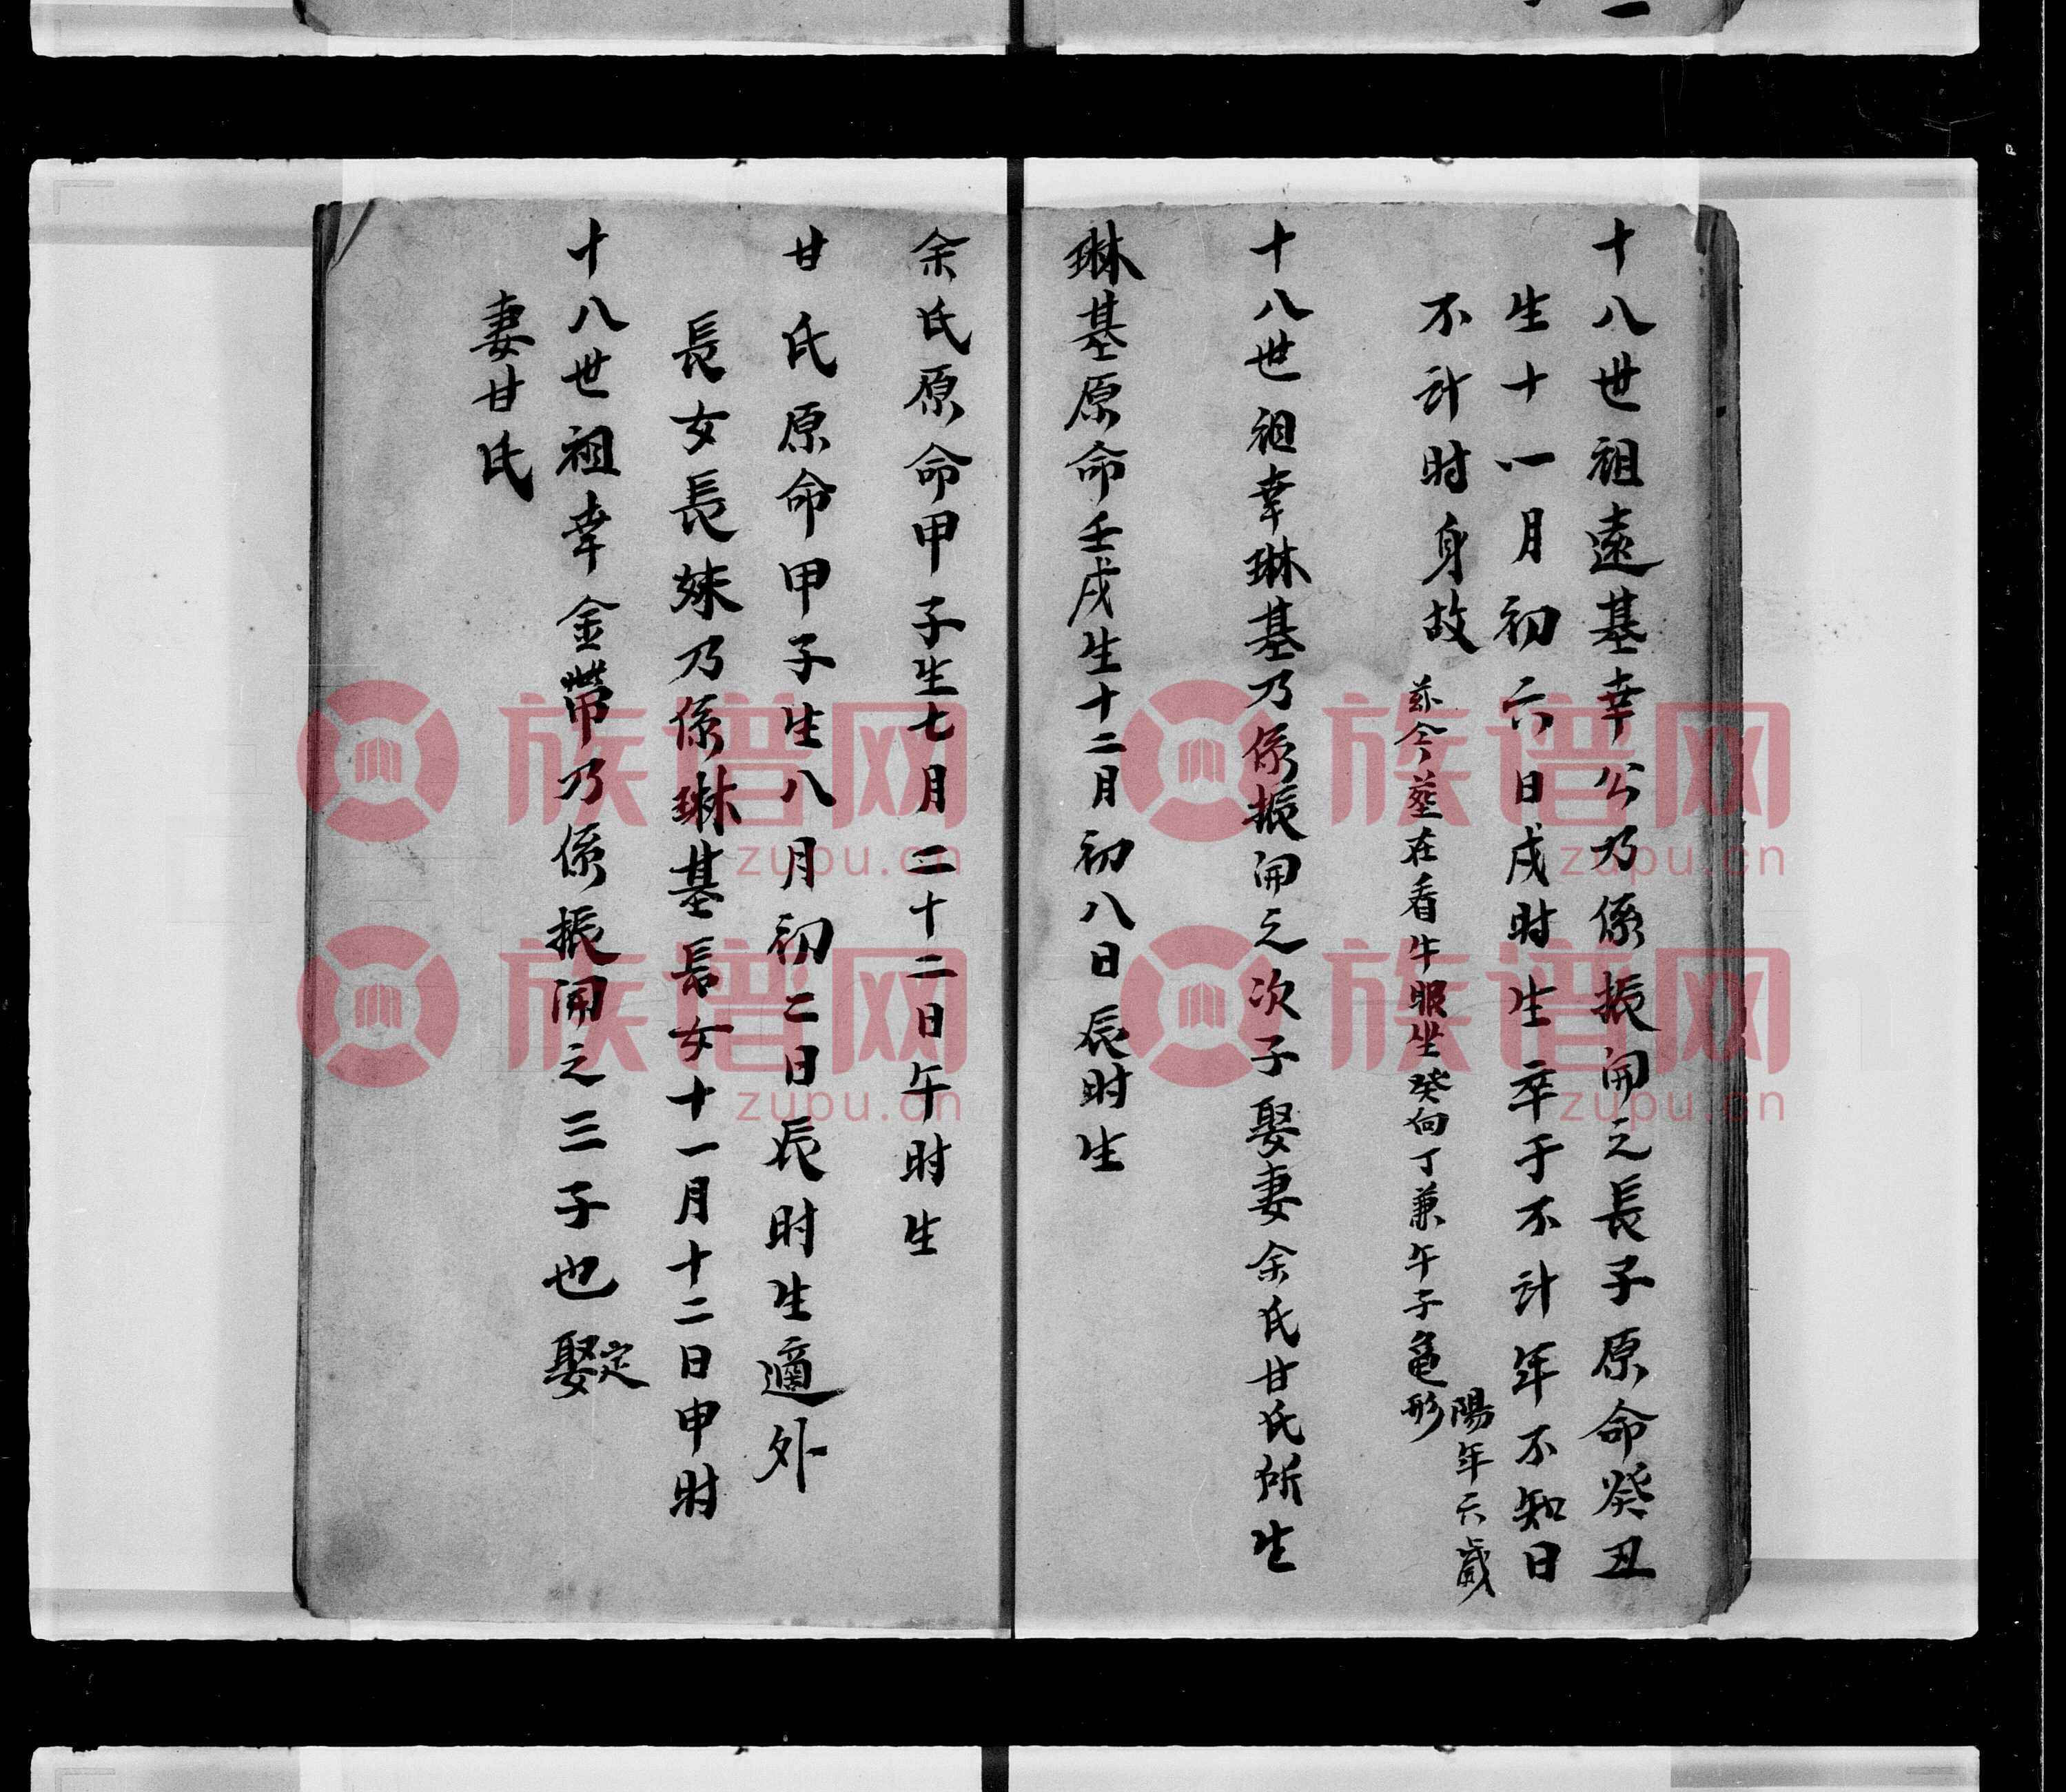 十八世祖遠基幸公乃係振開之長子原命癸丑
生十一月初六日戌时生卒于不计年不知日
不计时身故
兹今塟在看牛眼坐癸向丁兼午子龟形
陽年六歲
十八世祖幸琳基乃係振開之次子娶妻余氏甘氏所生
琳基原命壬戌生十二月初八日辰时生
余氏原命甲子生七月二十二日午时生
甘氏原命甲子生八月初二日辰时生適外
長女長妹乃係琳基長女十一月十二日申时
十八世祖幸金帶乃係振開之三子也 定娶
妻甘氏
族谱网 族谱网
zupu.cn zupu.cn
族谱网 族谱网
zupu.cn zupu.cn